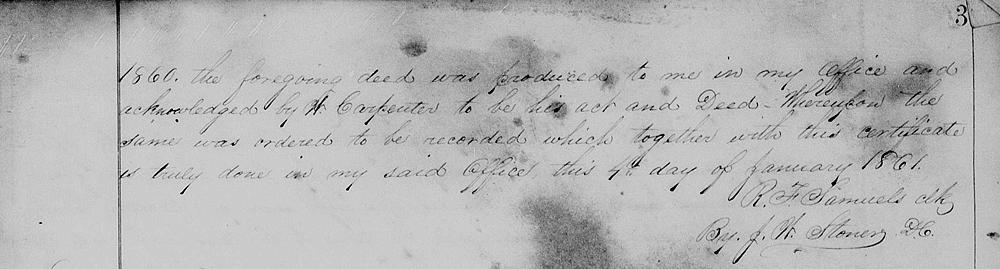 3
1860. the foregoing deed was produced to me in my Office and
acknowledged by W. Carpenter to be his act and Deed - Whereupon the
same was ordered to be recorded which together with this certificate
is truly done in my said Office, this 4th day of January 1861.
R. F. Samuels clk
By. J. W. Stoner D.C.